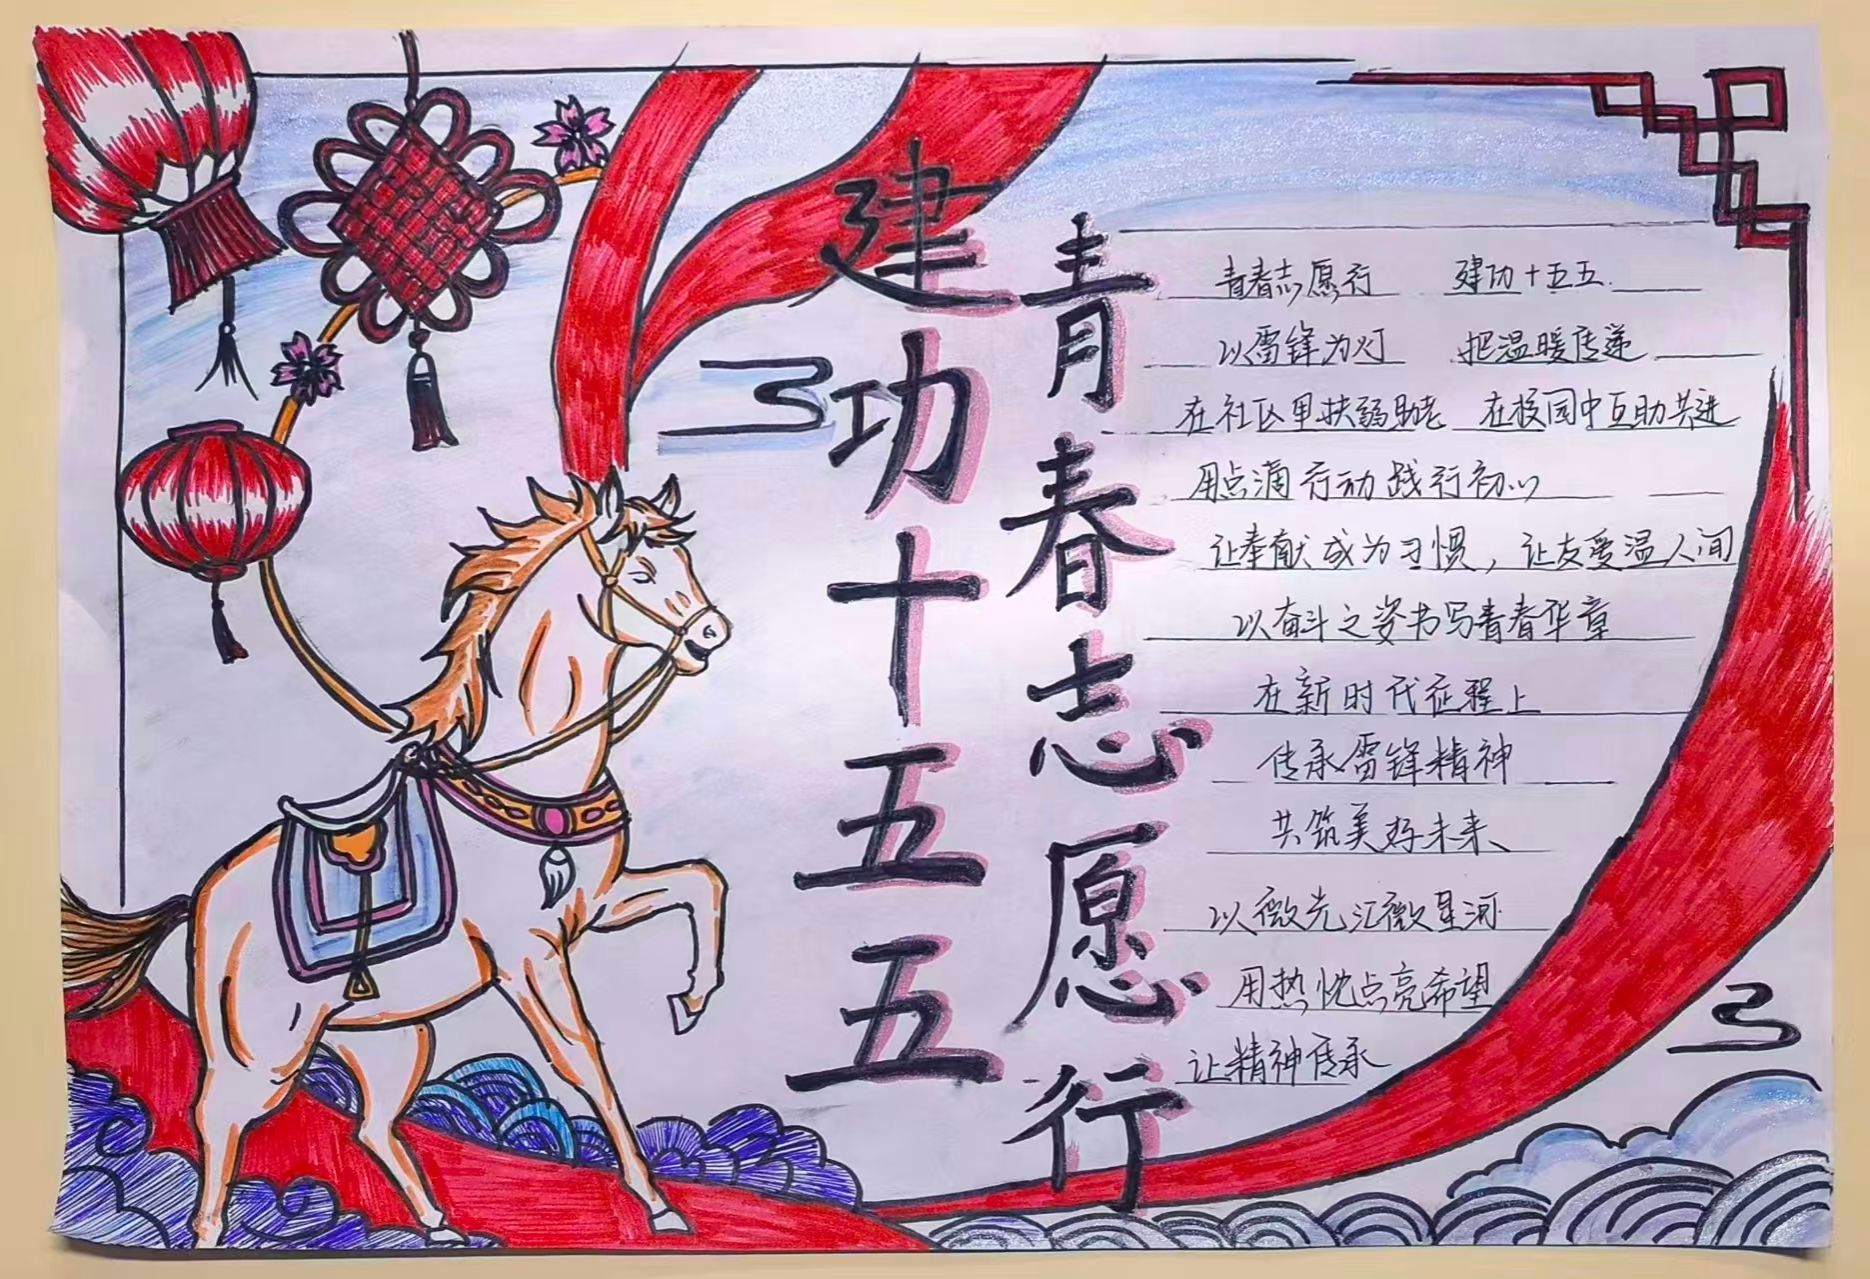 青春志愿行
建功十五五
青春志愿行 建功十五五.
以雷锋为灯 把温暖传递
在社区里扶弱助老 在校园中互助共进
用点滴行动践行初心
让奉献成为习惯，让友爱温人间
以奋斗之姿书写青春华章
在新时代征程上
传承雷锋精神
共筑美好未来
以微光汇微星河
用热忱点亮希望
让精神传承